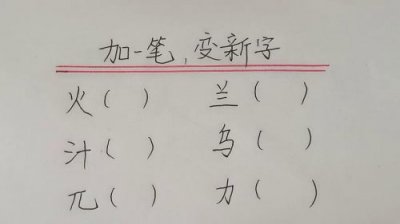 加一笔，变新字
火（ ） 兰（ ）
汁（ ） 乌（ ）
兀（ ） 力（ ）